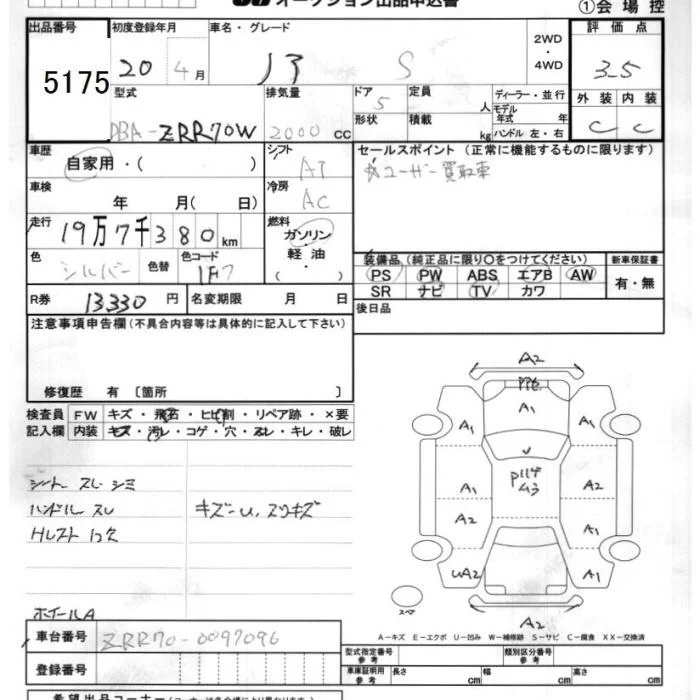 オークション出品申込書
①会場控
出品番号 5175
初度登録年月 20 4月
車名・グレード ノア S
2WD・4WD
評価点 3.5
外装 内装
C C
型式 DBA-ZRR70W
排気量 2000 CC
ドア 5
形状
定員 人
積載 kg
ディーラー・並行
モデル年式 年
ハンドル 左・右
車歴 自家用・( )
シフト AT
セールスポイント (正常に機能するものに限ります)
ユーザー買取車
車検 年 月( 日)
冷房 AC
走行 19万7千380km
燃料 ガソリン・軽油・( )
色 シルバー 色替 色コード 1F7
装備品 (純正品に限り○をつけてください) 新車保証書
PS PW ABS エアB AW 有・無
SR ナビ TV カワ
R券 13330円 名変期限 月 日
後日品
注意事項申告欄(不具合内容等は具体的に記入して下さい)
修復歴 有 〔箇所 〕
検査員 FW キズ・飛石・ヒビ割・リペア跡・×要
記入欄 内装 キズ・汚レ・コゲ・穴・スレ・キレ・破レ
シート スレ シミ
ハンドル スレ
キズ-U、スリキズ
ホイールA
A2
A1
A1 A1
U
A1 A2
A2 A1
UA2 A1
スペア
A2
A-キズ E-エクボ U-凹み W-補修跡 S-サビ C-腐食 XX-交換済
車台番号 ZRR70-0097096
型式指定番号 参考 類別区分番号 参考
登録番号
車庫証明用 参考 長さ cm 幅 cm 高さ cm
希望出品コーナー